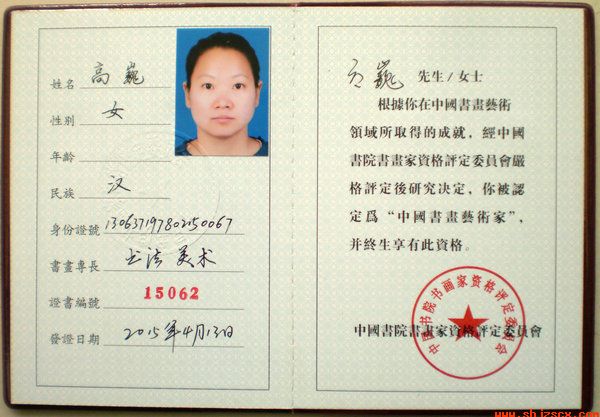 姓名 高巍
性别 女
年龄
民族 汉
身份證號 130637197802150067
書畫專長 书法 美术
證書編號 15062
發證日期 2015年4月13日
高巍 先生/女士
根據你在中國書畫藝術
領域所取得的成就，經中國
書院書畫家資格評定委員會嚴
格評定後研究决定，你被認
定爲“中國書畫藝術家”，
并終生享有此資格。
中国书院书画家资格评定委员会
中國書院書畫家資格評定委員會
www.shjzscx.com